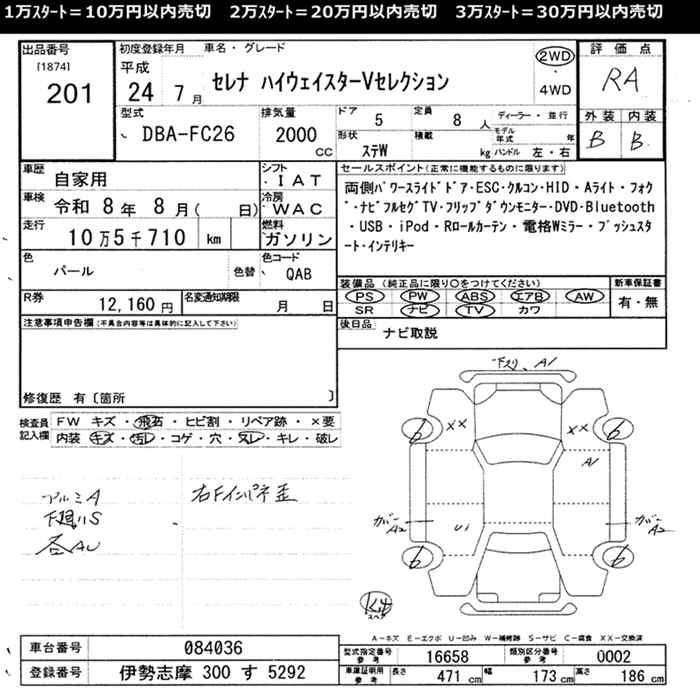 1万スタート=10万円以内売切 2万スタート=20万円以内売切 3万スタート=30万円以内売切
出品番号
[1874]
201
初度登録年月 車名・グレード
平成
24 7月
セレナ ハイウェイスターVセレクション
2WD
4WD
評価点
RA
外装 内装
B B
型式
DBA-FC26
排気量
2000 CC
ドア 5
定員 8 人
ディーラー・並行
形状 ステW
積載 kg
モデル年式 年
ハンドル 左・右
車歴 自家用
シフト IAT
車検 令和 8年 8月( 日)
冷房 WAC
走行 10万5千710 km
燃料 ガソリン
色 パール 色替
色コード QAB
R券 12,160円
名変通知期限 月 日
セールスポイント(正常に機能するものに限ります)
両側パワースライドドア・ESC・クルコン・HID・Aライト・フォグ
・ナビフルセグTV・フリップダウンモニター・DVD・Bluetooth
・USB・iPod・Rロールカーテン・電格Wミラー・プッシュスタ
ート・インテリキー
装備品(純正品に限り○をつけてください)
PS PW ABS エアB AW
SR ナビ TV カワ
新車保証書
有・無
後日品 ナビ取説
注意事項申告欄(不具合内容等は具体的に記入して下さい)
修復歴 有〔箇所 〕
検査員記入欄
FW キズ・飛石・ヒビ割・リペア跡・×要
内装 キズ・汚レ・コゲ・穴・スレ・キレ・破レ
アルミA
下廻りS
各AU
右Fインパネ歪
下スリ、A1
XX XX
6 6
A1
カバーA2
U1
カバーA2
6 6
スペア
A-キズ E-エクボ U-凹み W-補修跡 S-サビ C-腐食 XX-交換済
車台番号 084036
登録番号 伊勢志摩 300 す 5292
型式指定番号 参考 16658
類別区分番号 参考 0002
車庫証明用 参考
長さ 471 cm
幅 173 cm
高さ 186 cm